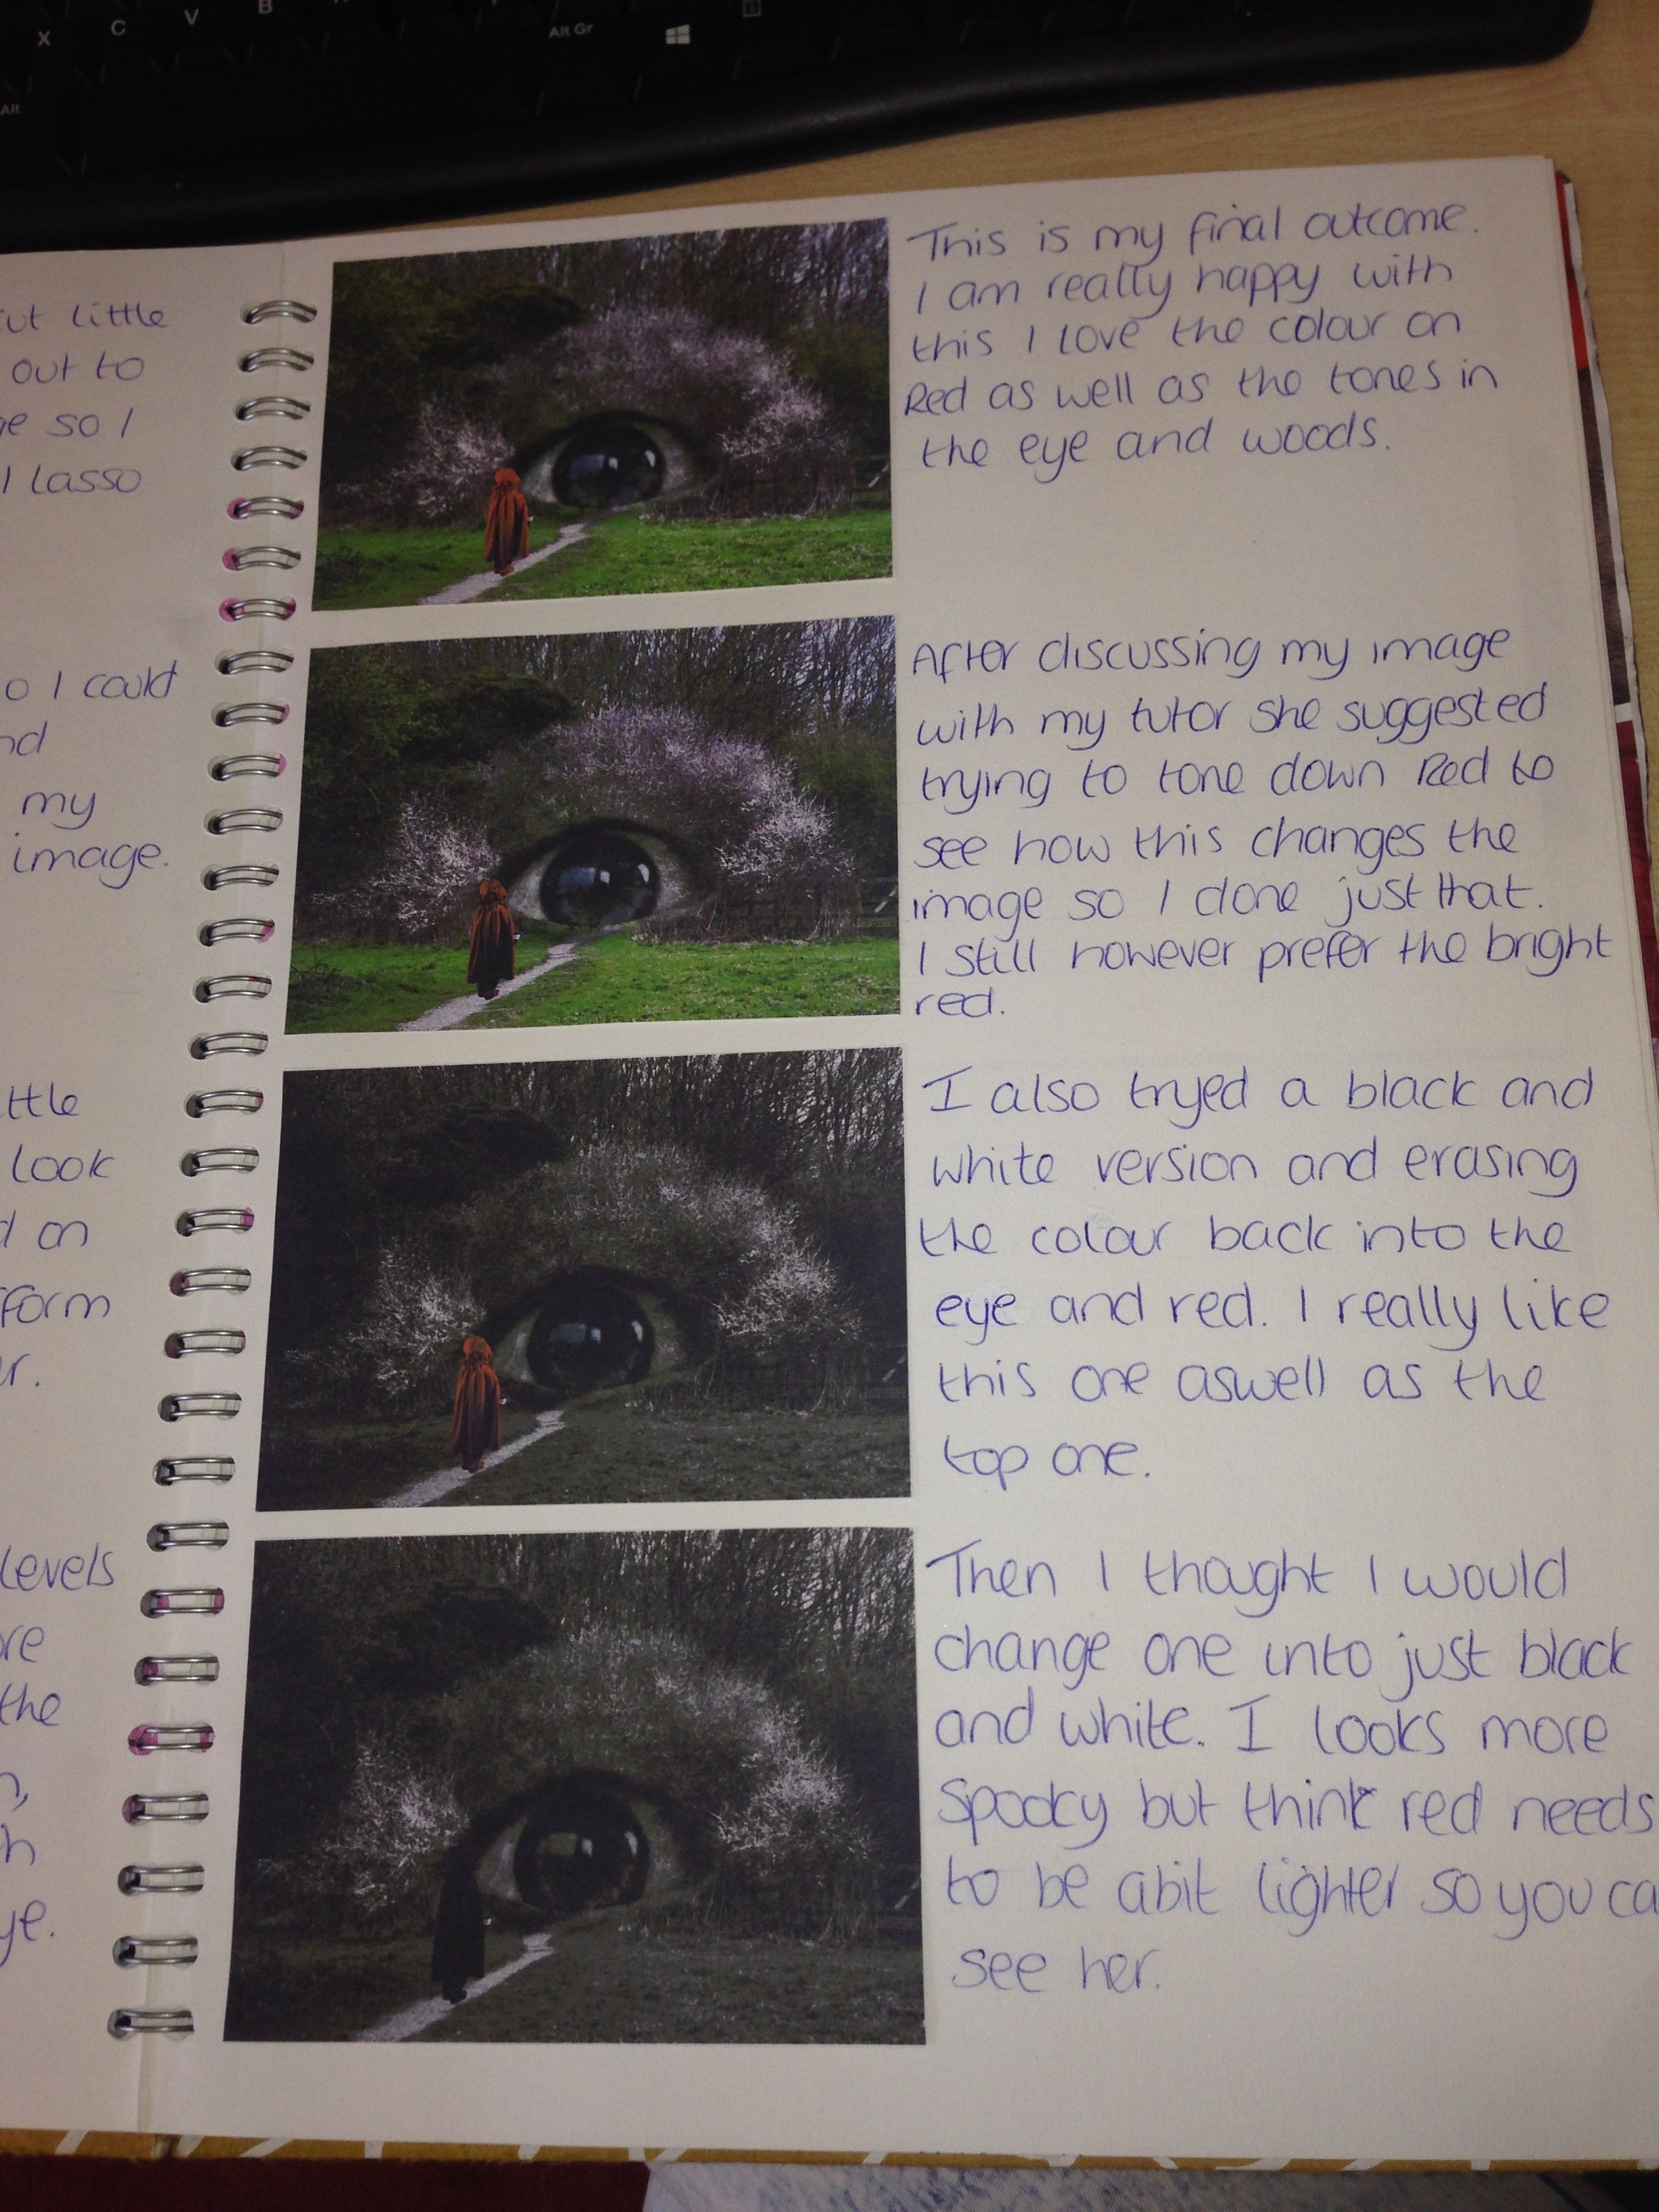 X C V B
Alt Gr
Alt
ut little
out to
so I
I lasso
o I could
nd
my
image.
ttle
look
on
form
r.
levels
re
the
n,
h
ye.
This is my final outcome.
I am really happy with
this I love the colour on
Red as well as the tones in
the eye and woods.
After discussing my image
with my tutor she suggested
trying to tone down Red to
see how this changes the
image so I done just that.
I still however prefer the bright
red.
I also tryed a black and
white version and erasing
the colour back into the
eye and red. I really like
this one aswell as the
top one.
Then I thought I would
change one into just black
and white. I looks more
spooky but think red needs
to be abit lighter so you ca
see her.